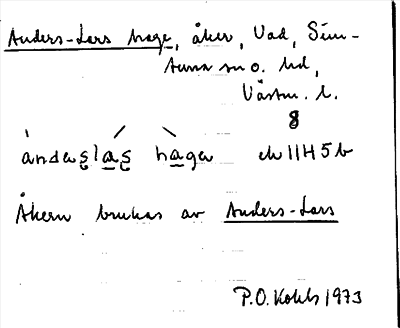 Anders-Lars hage, åker, Vad, Sim-
tuna sn o. hd,
Västm. l.
8
andaslas haga ek 11H5b
Åkern brukas av Anders-Lars
P.O. 1973